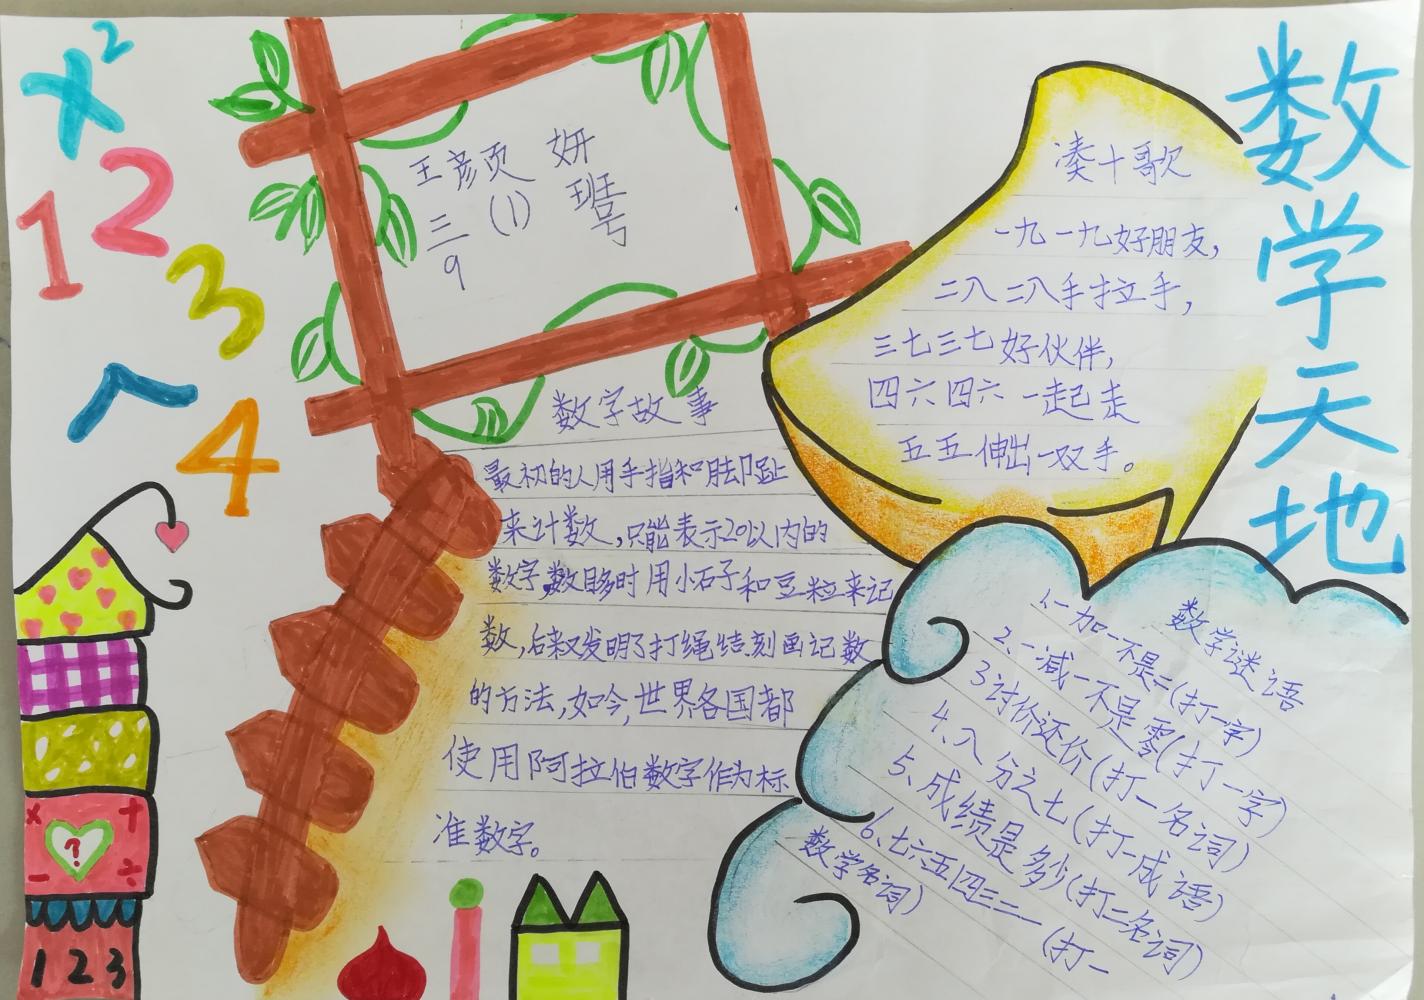 数学天地
x²
1
2
3
<
4
王彦颀 妍
三 (1) 班
9 号
凑十歌
一九一九好朋友,
二八二八手拉手,
三七三七好伙伴,
四六四六一起走
五五伸出一双手。
数字故事
最初的人用手指和脚趾
来计数,只能表示20以内的
数字,数目多时用小石子和豆粒来记
数,后来又发明了打绳结.刻画记数
的方法,如今,世界各国都
使用阿拉伯数字作为标
准数字。
数学谜语
1.一加一不是二(打一字)
2.一减一不是零(打一字)
3讨价还价(打一名词)
4.八分之七(打一成语)
5.成绩是多少(打二名词)
6.七六五四三二一(打一
数学名词)
x +
?
- ÷
1 2 3